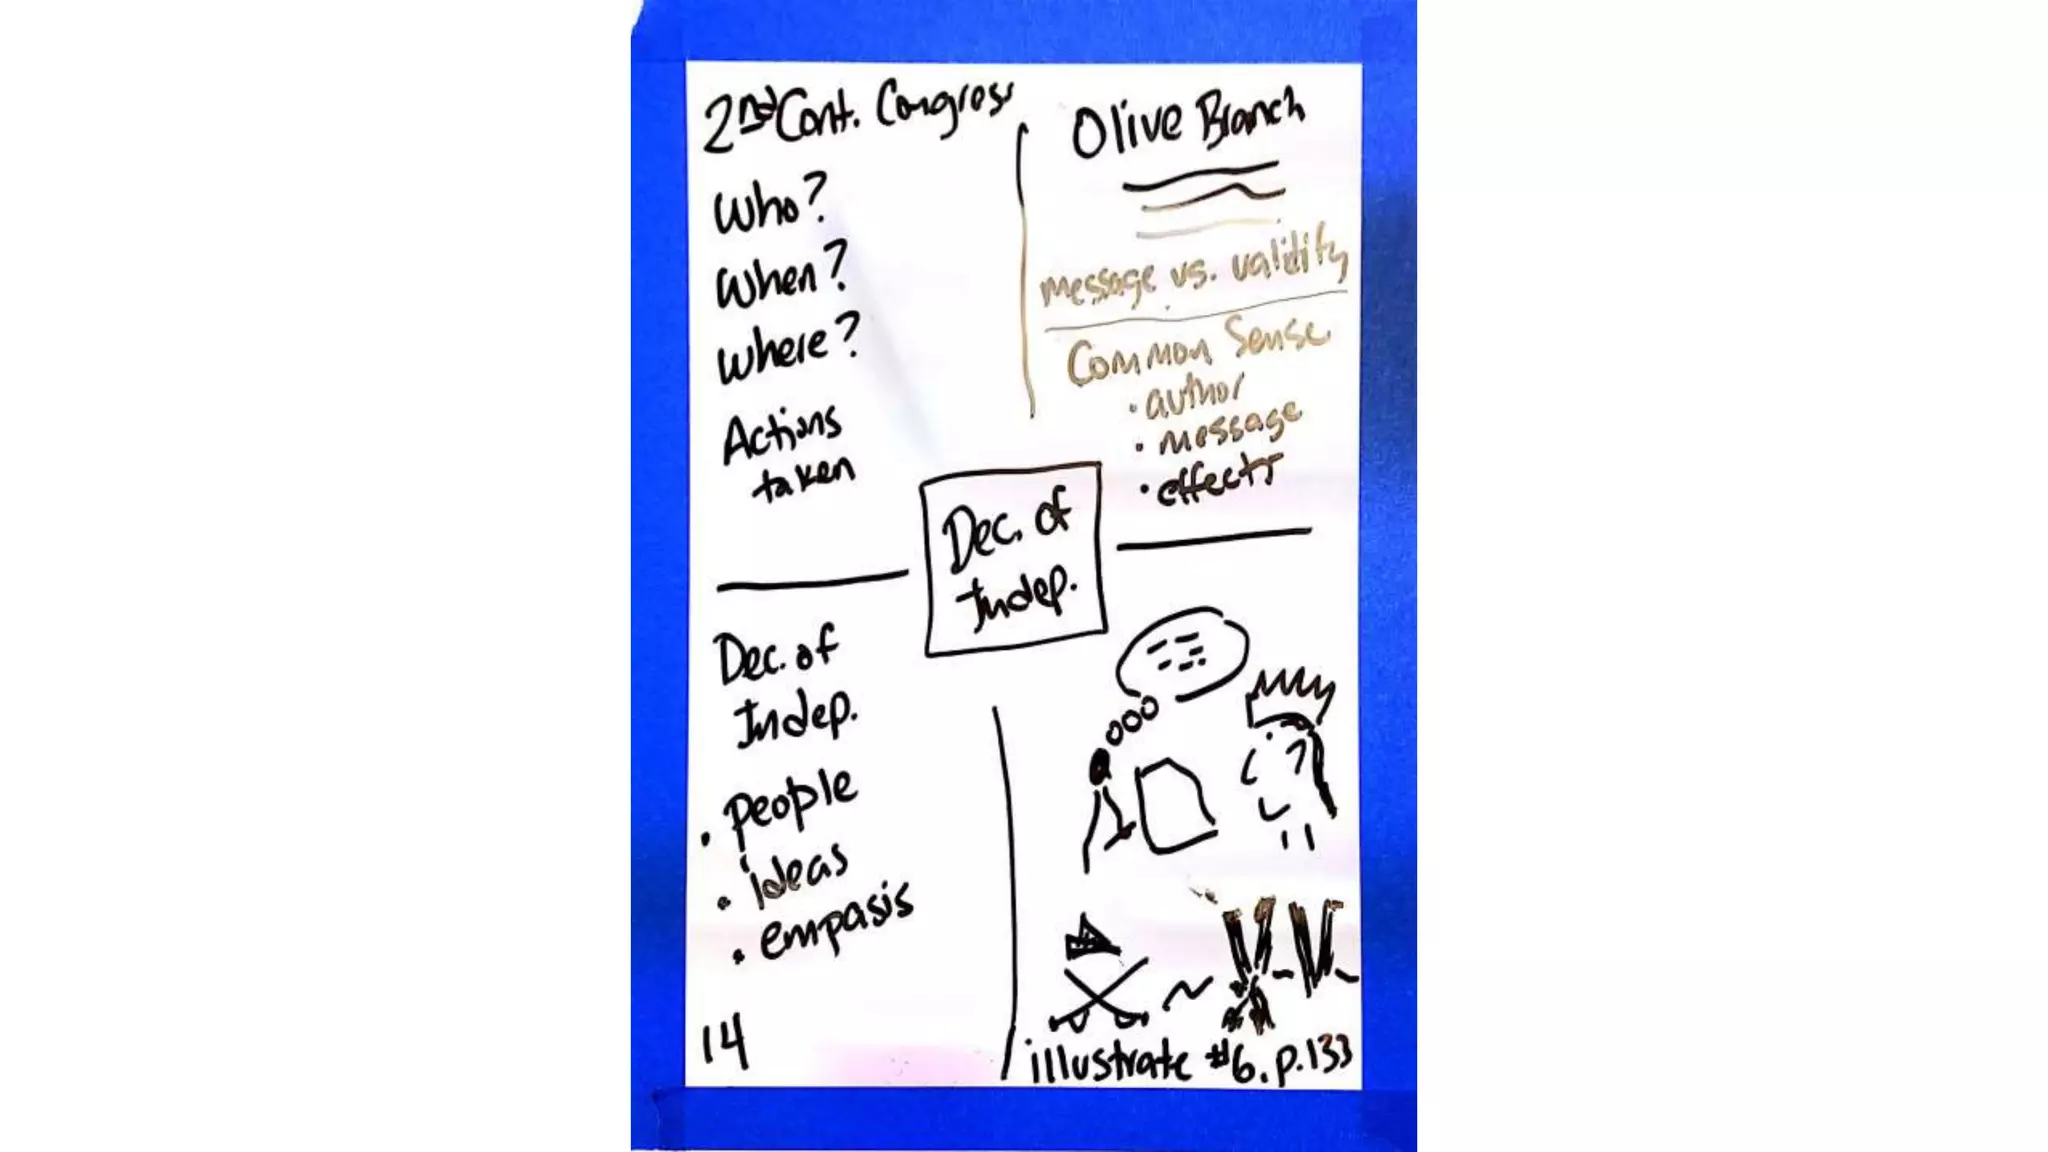 2nd Cont. Congress
Who?
When?
Where?
Actions
taken
Olive Branch
message vs. validity
Common Sense
• author
• message
• effects
Dec. of
Indep.
Dec. of
Indep.
• people
• ideas
• empasis
14
illustrate #6. p.133